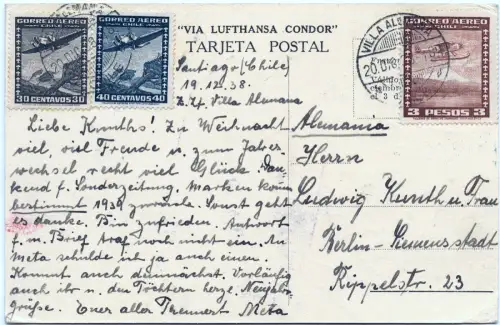 "VIA LUFTHANSA CONDOR"
TARJETA POSTAL
CORREO AEREO
CHILE
30 CENTAVOS 30
CORREO AEREO
CHILE
40 CENTAVOS 40
CORREO AEREO
CHILE
3 PESOS 3
VILLA ALEMANA
20 DIC
Santiago (Chile)
19.12.38.
z. Zt. Villa Alemana
Liebe Kunths! Zu Weihnacht
viel, viel Freude u. zum Jahres
wechsel recht viel Glück. Dan-
kend f. Sonderzeitung. Marken
bestimmt 1939 zurück. Sonst geht
es danke. Bin zufrieden. Antwort
f. m. Brief traf noch nicht ein. An
Meta schulde ich ja auch einen.
Kommt auch demnächst. Vorläufig
auch ihr u. den Töchtern herzl. Neujahrs-
grüsse. Euer aller Meta
Alemania
Herrn
Ludwig Kunth u. Frau
Berlin-Siemensstadt
Rippelstr. 23